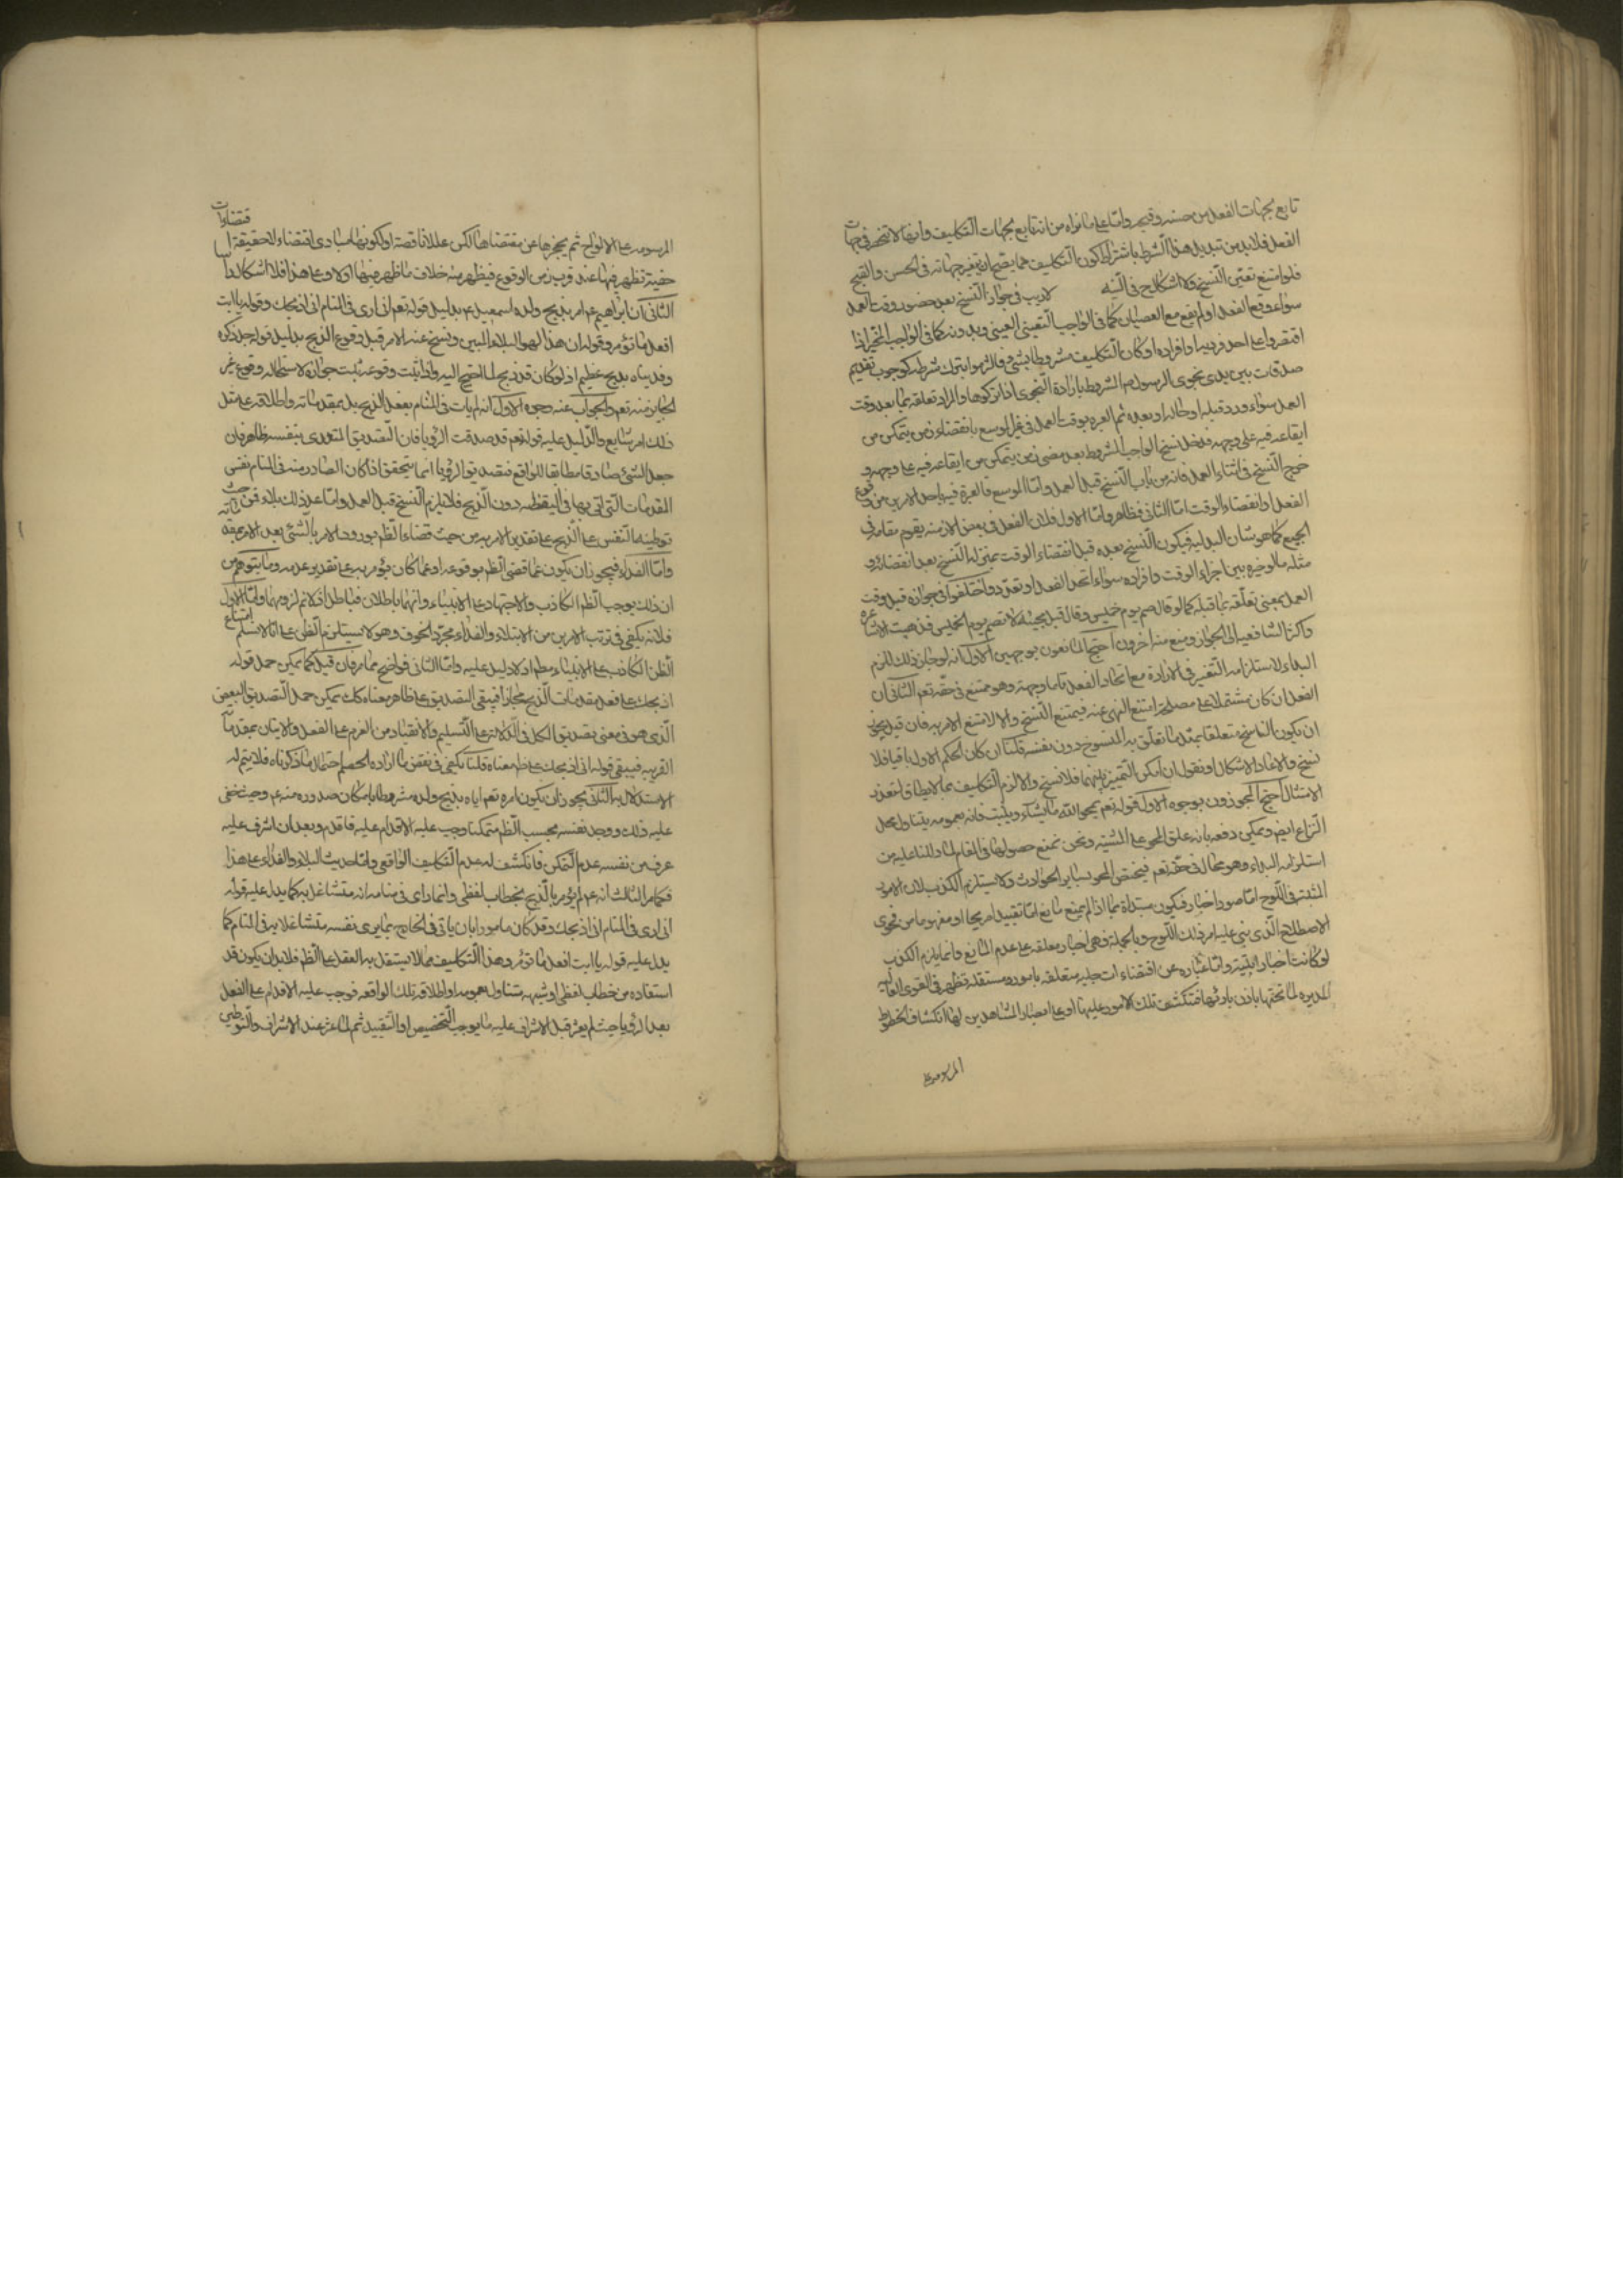 تابع لجهات الفعل من حسنه وقبحه واما على ما نراه من انه تابع لجهات التكليف وانها لا تنحصر في جهات
الفعل فلا بد من تبديل هذا الشرط باشتراط كون التكليف مما يصح ان يتغير جهاته في الحسن والقبح
فلو امتنع تعين النسخ ولا اشكال ح في لاريب في جواز النسخ بعد حضور وقت العمل
سواء وقع الفعل او لم يقع مع العصيان كما في الواجب التعييني العيني وبدونه كما في الواجب المخير اذا
اقتصروا على احد فرديه او افراده او كان التكليف مشروطا بشئ فالتزموا بترك شرطه كوجوب تقديم
صدقات بين يدى نجوى الرسول ص المشروط بارادة النجوى اذا تركوها والمراد تعلقه بما بعد وقت
العمل سواء ورد قبله او حاله او بعده ثم العبرة بوقت العمل في غير الموسع بانقضاء زمن يتمكن من
ايقاعه فيه على وجهه فدخل نسخ الواجب المشروط بعد مضى زمن يتمكن من ايقاعه فيه على وجهه و
خرج النسخ في اثناء العمل فانه من باب النسخ قبل العمل واما الموسع فالعبرة فيه باحد الامرين من وقوع
الفعل او انقضاء الوقت اما الثانى فظاهر واما الاول فلان الفعل في بعض الازمنة يقوم مقامه في
الجميع كما هو شان البدلية فيكون النسخ بعده قبل انقضاء الوقت بمنزلة النسخ بعد انقضائه و
مثله ما لو خير بين اجزاء الوقت وافراده سواء اتحد الفعل او تعدد واختلفوا في جوازه قبل وقت
العمل بمعنى تعلقه بما قبله كما لو قال صم يوم خميس وقال قبل مجيئه لا تصم يوم الخميس فذهبت الاشاعره
واكثر الشافعية الى الجواز ومنع منه اخرون احتج المانعون بوجهين الاول انه لو جاز ذلك للزم
البداء لاستلزامه التغير في الارادة مع اتحاد الفعل وهو ممتنع في حقه تعم الثانى ان
الفعل ان كان مشتملا على مصلحة امتنع النهى عنه فيمتنع النسخ والا لامتنع الامر به فان قيل يجوز
ان يكون الناسخ متعلقا بمثل ما تعلق به المنسوخ دون نفسه قلنا ان كان الحكم الاول باقيا فلا
نسخ والا عاد الاشكال او نقول ان امكن التمييز بينهما فلا نسخ والا لزم التكليف بما لا يطاق لتعذر
الامتثال احتج المجوزون بوجوه الاول قوله تعم يمحو الله ما يشاء ويثبت فانه بعمومه يتناول محل
النزاع ايض ويمكن دفعه بانه علق المحو على المشية ونحن نمنع حصولها في المقام لما دللنا عليه من
استلزامه البداء وهو محال في حقه تعم فيختص المحو بساير الحوادث ولا يستلزم الكذب لان الامور
المثبتة في اللوح اما صور اخبار فيكون بمنزلة ما اذا لم يمنع مانع اما تقييد صريحا او مفهوما من فحوى
الاصطلاح الذى بنى عليه امر ذلك اللوح وبالجملة فهى اخبار معلقة على عدم المانع وانما يلزم الكذب
لو كانت اخبارا بتية واما عبارة عن اقتضاءات جلية متعلقة بامور مستقلة تظهر في القوى العالية
المدبرة لما تحتها باذن بارئها فتنكشف تلك الامور عليها او على ابصار المشاهدين لها انكشاف الخطوط
المرسومة
المرسومة على الالواح ثم يحجزها عن مقتضاها لكن عللا ناقصة او لكونها مبادى اقتضاء لا حقيقة اقتضاءات
خفية تظهر فيها عند قرب زمن الوقوع فيظهر منه خلاف ما ظهر منها اولا وعلى هذا فلا اشكال
الثانى ان ابراهيم ع امر بذبح ولده اسمعيل ع بدليل قوله تعم انى ارى في المنام انى اذبحك وقوله يا ابت
افعل ما تؤمر وقوله ان هذا لهو البلاء المبين ونسخ عنه الامر قبل وقوع الذبح بدليل قوله جل ذكره
وفديناه بذبح عظيم اذ لو كان قد ذبح لما احتيج اليه واذا ثبت وقوعه ثبت جوازه لاستحالة وقوع غير
الجايز منه تعم والجواب عنه وجوه الاول انه لم يات في المنام بفعل الذبح بل بمقدماته واطلاقه على مثل
ذلك امر شايع والدليل عليه قوله تعم قد صدقت الرؤيا فان التصديق المتعدى بنفسه ظاهر فان
جعل الشئ صادقا مطابقا للواقع فتصديق الرؤيا انما يتحقق اذا كان الصادر منه في المنام نفس
المقدمات التى اتى بها في اليقظة دون الذبح فلا يلزم النسخ قبل العمل واما عد ذلك بلاء فمن حيث
توطينه النفس على الذبح على تقدير الامر به من حيث قضاء الظم بورود الامر بالشئ بعد الامر بمقدماته
واما الفداء فيجوز ان يكون عما قضى الظم بوقوعه او عما كان يؤمر به على تقدير عدمه وما يتوهم من
ان ذلك يوجب الظم الكاذب والاجتهاد على الانبياء وانهما باطلان فباطل اذ لا نم لزومهما واما الاول
فلانه يكفى في ترتب الامرين من الابتلاء والفداء مجرد الخوف وهو لا يستلزم الظن على انا لا نسلم امتناع
الظن الكاذب على الانبياء مطم اذ لا دليل عليه واما الثانى فواضح مما مر فان قيل كما يمكن حمل قوله
اذبحك على فعل مقدمات الذبح مجازا فيبقى التصديق على ظاهر معناه كك يمكن حمل التصديق البعض
الذى هو في معنى تصديق الكل في الدلالة على التسليم والانقياد من العزم على الفعل والاتيان بمقدماته
القريبه فيبقى قوله انى اذبحك على ظم معناه قلنا يكفى في نقض ما اراده الخصم احتمال ما ذكرناه فلا يتم له
الاستدلال به الثانى يجوز ان يكون امره تعم اياه بذبح ولده مشروطا بامكان صدوره منه ع وحيث خفى
عليه ذلك ووجد نفسه بحسب الظم متمكنا وجب عليه الاقدام عليه فاقدم وبعد ان اشرف عليه
عرف من نفسه عدم التمكن فانكشف له عدم التكليف الواقعى واما حديث البلاء والفداء على هذا
فكما مر الثالث انه ع لم يؤمر بالذبح بخطاب لفظى وانما راى في منامه انه متشاغل به كما يدل عليه قوله
انى ارى في المنام انى اذبحك وقد كان مامورا بان ياتى في الخارج بما يرى نفسه متشاغلا به في المنام كما
يدل عليه قوله يا ابت افعل ما تؤمر وهذا التكليف مما لا يستقل به العقل على الظم فلا بد ان يكون قد
استفاده من خطاب لفظى او شبهه متناول بعمومه او اطلاقه تلك الواقعه فوجب عليه الاقدام على الفعل
بعد الرؤيا حيث لم يعثر قبل الاشراف عليه ما يوجب التخصيص او التقييد ثم لما عثر عند الاشراف والتوطين